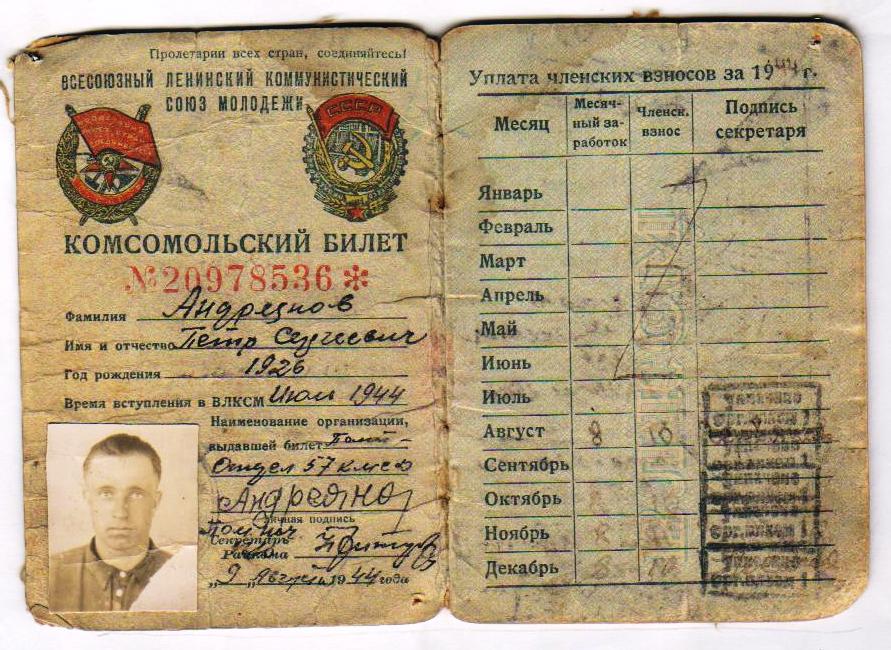 Пролетарии всех стран, соединяйтесь!
ВСЕСОЮЗНЫЙ ЛЕНИНСКИЙ КОММУНИСТИЧЕСКИЙ
СОЮЗ МОЛОДЕЖИ
СССР
КОМСОМОЛЬСКИЙ БИЛЕТ
№20978536 *
Фамилия Андреянов
Имя и отчество Петр Сергеевич
Год рождения 1926
Время вступления в ВЛКСМ Июль 1944
Наименование организации,
выдавшей билет Полит-
Отдел 57
Андреянов
Личная подпись
Пом Нач
Секретарь
Райкома
„9 „ Августа 1944 года
Уплата членских взносов за 1944 г.
Месяц
Месяч-
ный за-
работок
Членск.
взнос
Подпись
секретаря
Январь
Февраль
Март
Апрель
Май
Июнь
Июль
Август 8 10
Сентябрь
Октябрь
Ноябрь
Декабрь